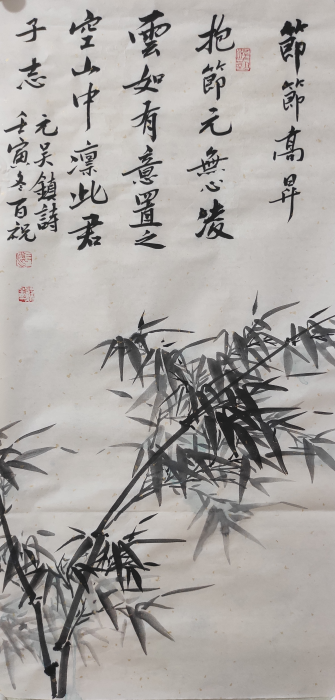 節節高昇
抱節元無心凌
雲如有意置之
空山中凛此君
子志
元吴鎮詩
壬寅冬百祝